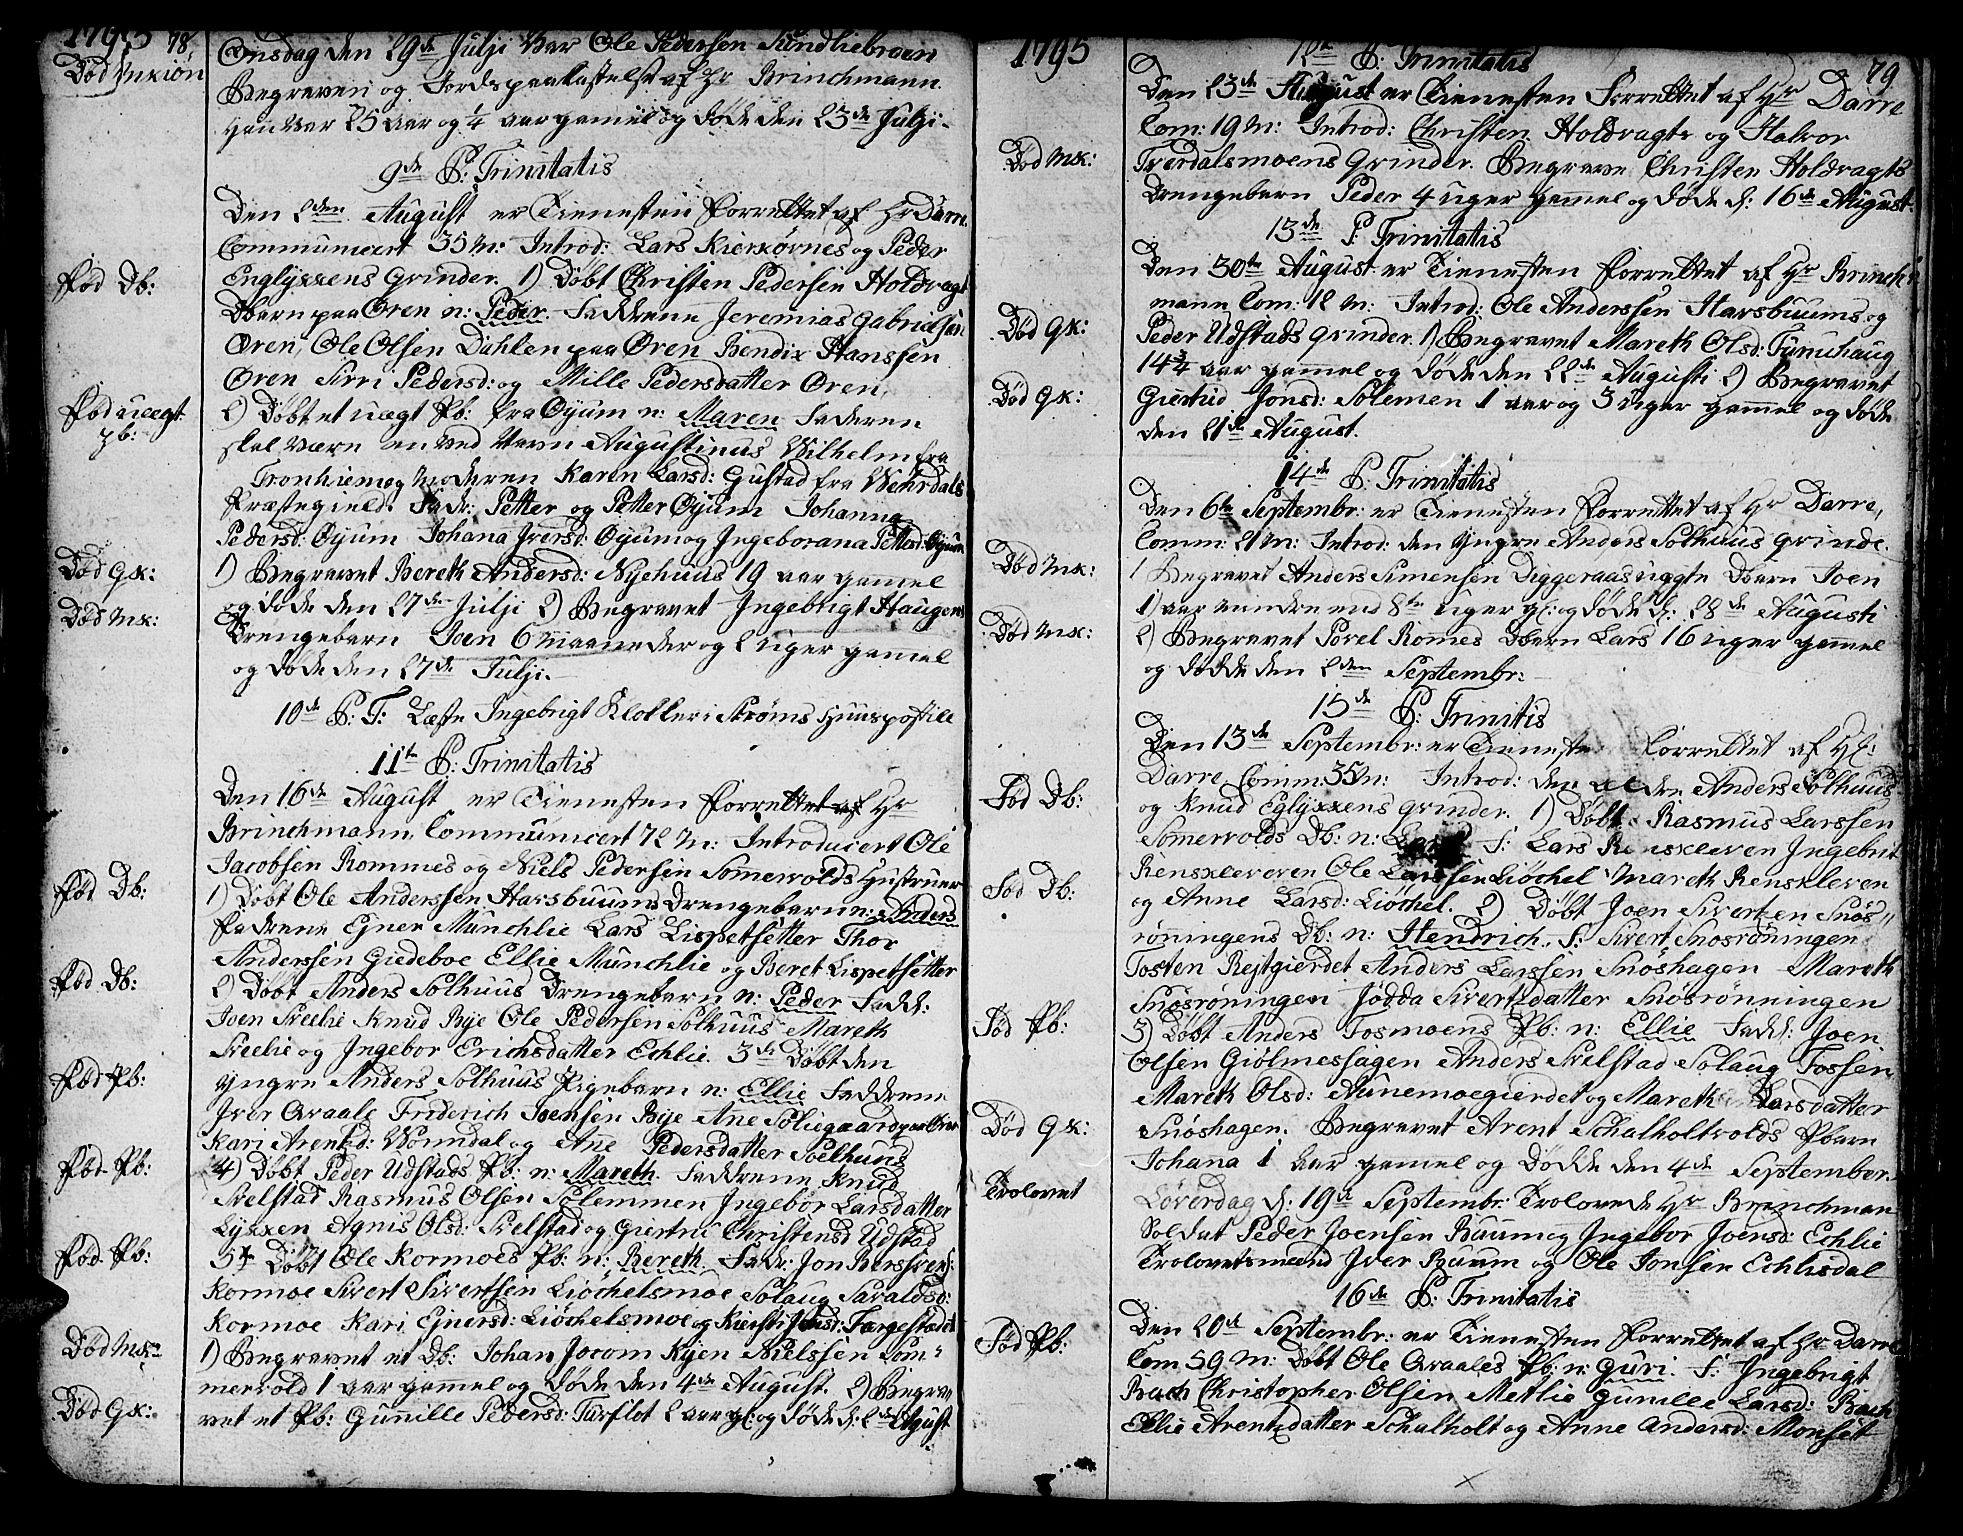 1795 78.
Onsdag den 29de Julji var Ole Pedersen Sundliebroen
Død
Begraven og Jordspaakastelse af Hr Brinchmann.
Han var 25 Aar og 1/4 aar gamel og døde den 23de Julji.
9de P: Trinitatis
Den 2den August er Tienesten forrettet af Hr Darre.
Communicert 35 M: Introd: Lars Kierkørnes og Peder
Englyxxens grinder. 1) Døbt Christen Pedersen Holdragt
Fød Db:
Dbarn paa Øren n: Peder. Faddrene Jeremias Gabrielsen
Øren, Ole Olsen Dahlen paa Øren Bendix Hanssen
Øren Sirri Pedersd: og Mille Pedersdatter Øren,
2) Døbt et uægt Pb: fra Øyum n: Maren Faderen
Fød uægt
Pb:
skal værn en ved Navn Augustinus Wilhelm fra
Tronhiem og Moderen Karen Larsd: Gustad fra Wehrdals
Præstegield. Fadr: Petter og Petter Øyum Johanna
Pedersd: Øyum Johana Iversd: Øyum og Ingeborana Pettersd: Øyum
1) Begravet Bereth Andersd: Nyehuus 19 aar gamel
Død Qk:
og døde den 27de Julji 2) Begravet Ingebrigt Haugens
Død Mk:
Drengebarn Joen 6 maaneder og 2 Uger gamel
og døde den 27de Julji.
10de P: T: Læste Ingebrigt Klokker i Strøms Huuspostill
11te P: Trinitatis
Den 16de August er Tienesten forrettet af Hr
Brinchmann, Communicert 72 M: Introducert Ole
Jacobsen Rommes og Niels Pedersen Somervolds Hustruer
1) Døbt Ole Anderssen Harsbuums Drengebarn n: Anders
Fød Db:
Fadrene Ejner Munchlie Lars Lispetsetter Thor
Anderssen Giedeboe Ellie Munchlie og Beret Lispetsetter
2) Døbt Anders Solhuus Drengebarn n: Peder Fadd:
Fød Db:
Joen Skeelie Knud Bye Ole Pedersen Solhuus Mareth
Skeelie og Ingebor Erichsdatter Echlie. 3de Døbt den
Yngre Anders Solhuus Pigebarn n: Ellie Faddrene
Fød Pb:
Iver Qvaale Friderich Joensen Bye Ane Soliegaard paa Øren
Kari Arentsd: Wonndal og Ane Pedersdatter Soelhuus
4) Døbt Peder Udstads Pb: n: Mareth. Faddrene Knud
Fød Pb:
Skelstad Rasmus Olsen Solemmen Ingebor Larsdatter
Lyxxen Agnis Olsd: Skelstad og Giertru Christensd Udstad
5te Døbt Ole Kormoes Pb: n: Bereth. Fadr: Jon Bersvens:
Fød Pb:
Kormoe Sivert Sivertsen Liøchelsmoe Solaug Saraldsd:
Kormoe Kari Ejnersd: Liøchelsmoe og Kiersti Jonsd: Fargestadet
1) Begravet et Db: Johan Jocom Kyen Nielssen Som-
Død Mk:
mervold 1 aar gamel og døde den 4de August. 2) Begra
vet et Pb: Gunille Pedersd: Turflot 2 aar gl: og døde d: 2de August
Død Qk:
1795
79
12te P: Trinitatis
Den 23de August er Tienesten Forrettet af Hr Darre
Com: 19 M: Introd: Christen Holdragts og Halvor
Trærdalsmoens Grinder. Begraven Christen Holdragts
Død Mk:
Drengebarn Peder 4 uger gamel og døde d: 16de August.
13de P: Trinitatis
Den 30te August er Tienesten forrettet af Hr Brinch-
mann Com: 12 M: Introd: Ole Anderssen Harsbuums og
Peder Udstads Grinder. 1) Begravet Mareth Olsd: Furuhaug
Død Qk:
14 3/4 aar gamel og døde den 22de Augusti 2) Begravet
Giertrud Jonsd: Solemen 1 aar og 5 uger gamel og døde
Død Qk:
den 21de August.
14de P: Trinitatis
Den 6te Septembr: er Tienesten forrettet af Hr Darre,
Comm: 21 M: Introd: den Yngre Anders Solhuus grinde.
1 Begravet Anders Simensen Diggeraas uægte Dbarn Joen
Død Mk:
1) aar mindre end 8te Uger gl: og døde d: 28de Augusti
2) Begravet Povel Romes Dbarn Lars 16 uger gamel
Død Mk:
og dødde den 2den Septembr:
15de P: Trinitis
Den 13de Septembr: er Tieneste forrettet af Hr:
Darre Comm: 35 M: Introd: den ældre Anders Solhuus
og Knud Eglyxxens grinder. 1) Døbt Rasmus Larssen
Fød Db:
Somervolds Db: n: F: Lars Renskleven Ingebrit
Rensklevren Ole Larssen Liøchel Mareth Renskleven
og Anne Larsd: Liøchel. 2) Døbt Joen Sivertsen Snøs
Fød Db:
røningens Db: n: Hendrich. F: Sivert Snosrøningen
Tosten Rejtgierdet Anders Larssen Snøshagen Mareth
Snøsrøningen Jødda Sivertsdatter Snøsrønningen
3) Døbt Anders Fosmoens Pb: n: Ellie Fadd: Joen
Fød Pb:
Olsen Giølmeshagen Anders Skelstad Solaug Fossen
Mareth Olsd: Aunemoegierdet og Mareth Larsdatter
Snøshagen. Begravet Arent Schalholtvolds Pbarn
Død Qk:
Johana 1 Aar gamel og Dødde den 4de September.
Løverdag d: 19de Septembr: Trolovede Hr Brinchman
Trolovet
Soldat Peder Joensen Buum og Ingebor Joensd: Echlie
Trolovetsmænd Iver Buum og Ole Jonsen Echlisdal
16de P: Trinitatis
Den 20de Septembr: er Tienesten forrettet af Hr Darre
Com 59 M: Døbt Ole Qvaales Pb: n: Guri. F: Ingebrigt
Fød Pb:
Bach Christopher Olsen Metlie Gunille Larsd: Bach
Ellie Arentsdatter Schalholt og Anne Andersd: Monset